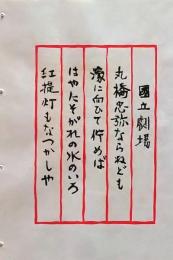 國立劇場
丸橋忠弥ならねども
濠に向ひて佇めば
はやたそがれの水のいろ
紅提灯もなつかしや